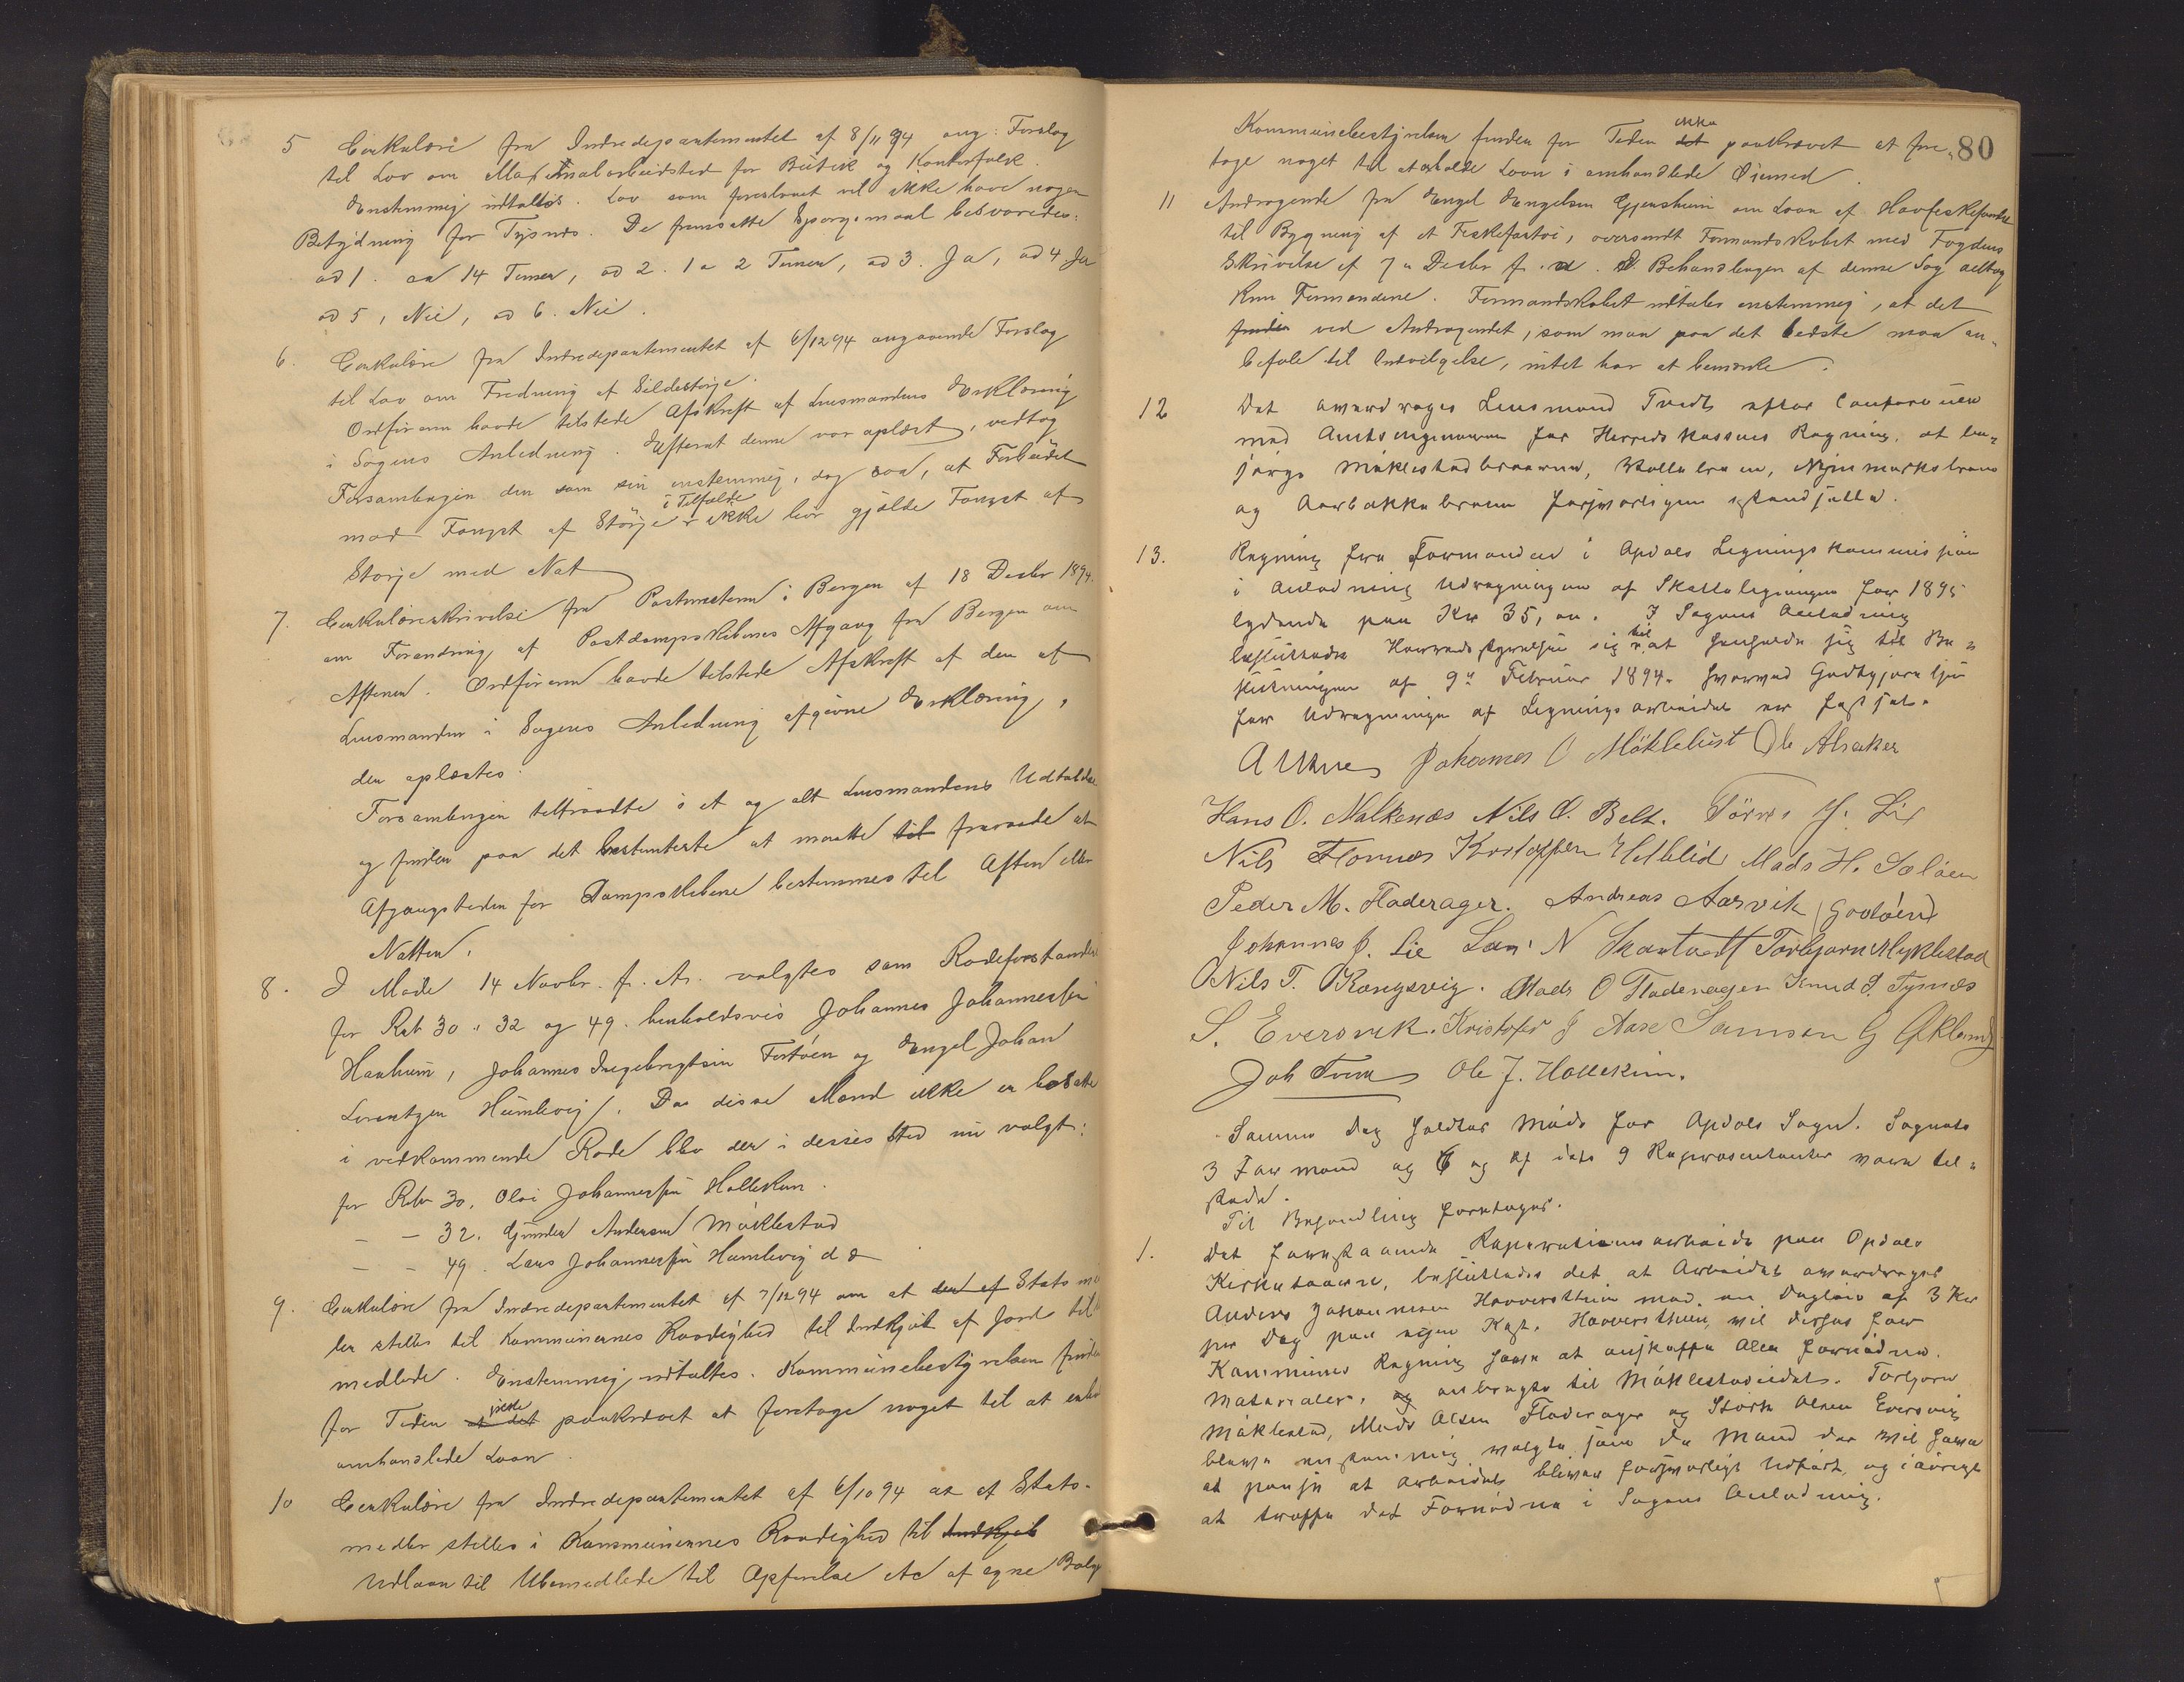 5 Cirkulære fra Indredepartementet af 8/11 94 ang: Forslag
til Lov om Maximalarbeidstid for Butik og Kontorfolk.
Enstemmig udtaltes. Lov som foreslaaet vil ikke have nogen
Betydning for Tysnes. De fremsatte Spørgsmaal besvaredes:
ad 1. ca 14 Timer, ad 2. 1 a 2 Timer, ad 3. Ja, ad 4 Ja
ad 5, Nei, ad 6. Nei.
6. Cirkulære fra Indredepartementet af 6/12 94 angaaende Forslag
til Lov om Fredning af Sildestørje.
Ordføreren havde tilstede Afskrift af Lensmandens Erklæring
i Sagens Anledning. Efterat denne var oplæst, vedtog
Forsamlingen den som sin enstemmig, dog saa, at Forbudet
mod Fangst af Størje i Tilfælde ikke bør gjælde Fangst af
Størje med Not
7. Cirkulæreskrivelse fra Postmesteren i Bergen af 18 Decbr 1894
om Forandring af Postdampskibenes Afgang fra Bergen om
Aftenen. Ordføreren havde tilstede Afskrift af den af
Lensmanden i Sagens Anledning afgivne Erklæring,
der oplæstes.
Forsamlingen tiltraadte i et og alt Lensmandens Udtalelse
og finder paa det bestemteste at maatte til fraraade at
Afgangstiden for Dampskibene bestemmes til Aften eller
Natten.
8. I Møde 14 Novbr. f. A. valgtes som Rodeforstander
for Rob 30, 32 og 49. henholdsvis Johannes Johannessen
Hauheim, Johannes Ingebrigtsen Tertøen og Engel Johan
Lorentzen Humlevig. Da disse Mænd ikke er bosatte
i vedkommende Rode blev der i desses Sted nu valgt:
for Rode 30. Olai Johannessen Hollekim.
— — 32. Gunder Andersen Møklestad
— — 49. Lars Johannessen Humlevig d æ
9. Cirkulære fra Indredepartementet af 7/12 94 om at der af Statsmid
ler stilles til Kommunernes Raadighed til Indkjøb af Jord til
medlede. Enstemmig udtaltes. Kommunebestyrelsen finder
for Tiden at det ikke paakrævet at foretage noget til at erho
omhandlede Laan
10 Cirkulære fra Indredepartementet af 6/10 94 at af Stats-
midler stilles i Kommunernes Raadighed til Indkjøb
Udlaan til Ubemidlede til Opførelse etc af egne Bolig
80
Kommunebestyrelsen finder for Tiden det ikke paakrævet at fore-
tage noget til at erholde Laan i omhandlede Øiemed.
11 Andragende fra Engel Engelsen Gjersheim om Laan af Havfiskefondet
til Bygning af et Fiskefartøi, oversendt Formandskabet med Fogdens
Skrivelse af 7de Decbr f. A. I Behandlingen af denne Sag deltog
kun Formændene. Formandskabet udtaler enstemmig, at det
finder ved Andragendet, som man paa det bedste maa an-
befale til Indvilgelse, intet har at bemærke.
12 Det overdrages Lensmand Tvedt efter Conference
med Amtsingeniøren for Herredskassens Regning, at be-
sørge Møklestadbroerne, Nymarksbroen
og Aarbakkebroen forsvarligen istandsatte.
13. Regning fra Formanden i Opdals Ligningskommission
i Anledning Udregningen af Skatteligningen for 1895
lydende paa Kr 35,00. I Sagens Anledning
besluttede Herredsstyrelsen sig til at henholde sig til Be-
slutningen af 9de Februar 1894. hvorved Godtgjørelsen
for Udregningen af Ligningsarbeidet er fastsat.
Johannes O Møklebust Ole Alsaker
Hans O. Malkenæs Nils O. Belt. J. Lie
Nils Flornes Kristoffer Helblid Mads H. Søløen
Peder M. Fladerager. Andreas Aarvik Godøend
Johannes J. Lie Lars N Skartvedt Torbjørn Myklestad
Nils T. Kongsvig. Mads O Fladerager Knud J. Tysnæs
S. Eversvik. Kristofer J Aase Samson G Økland
Joh Tvedt Ole J. Hollekim.
Samme Dag holdtes Møde for Opdals Sogn. Sognets
3 Formænd og 6 og af dets 9 Repræsentanter vare til-
stede.
Til Behandling foretoges.
1. Det forestaaende Reparationsarbeide paa Opdals
Kirketaarn, besluttedes det at Arbeidet overdrages
Anders Johannesen Hovversthun mod en Dagløn af 3 Kr
per Dag paa egen Kost. Hovversthun vil desuden for
Kommunens Regning have at anskaffe Alle fornødne
Materialer, og anbragte til Møklestadeidet. Torbjørn
Møklestad, Mads Olsen Fladerager og Størk Olsen Eversvig
bleve enstemmig valgte som de Mænd der vil have
at paase at Arbeidet bliver forsvarligt Udført, og iøvrigt
at træffe det Fornødne i Sagens Anledning.